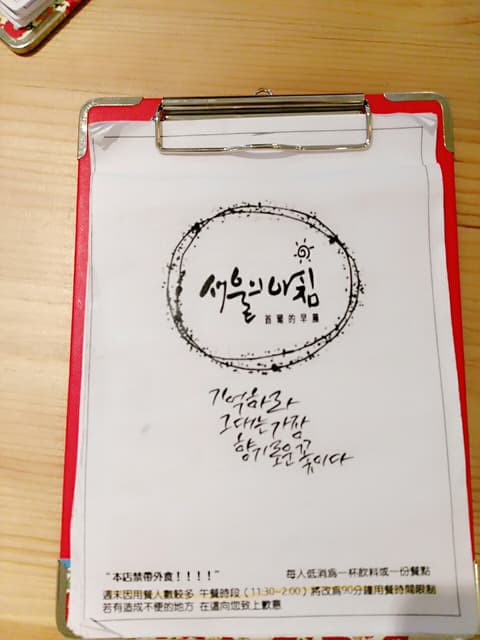 서울의 아침
首爾的早晨
기억하라
그대는 가장
향기로운 꽃이다
"本店禁帶外食！！！！" 每人低消為一杯飲料或一份餐點
週末因用餐人數較多 午餐時段（11:30~2:00）將改為90分鐘用餐時間限制
若有造成不便的地方 在這向您致上歉意